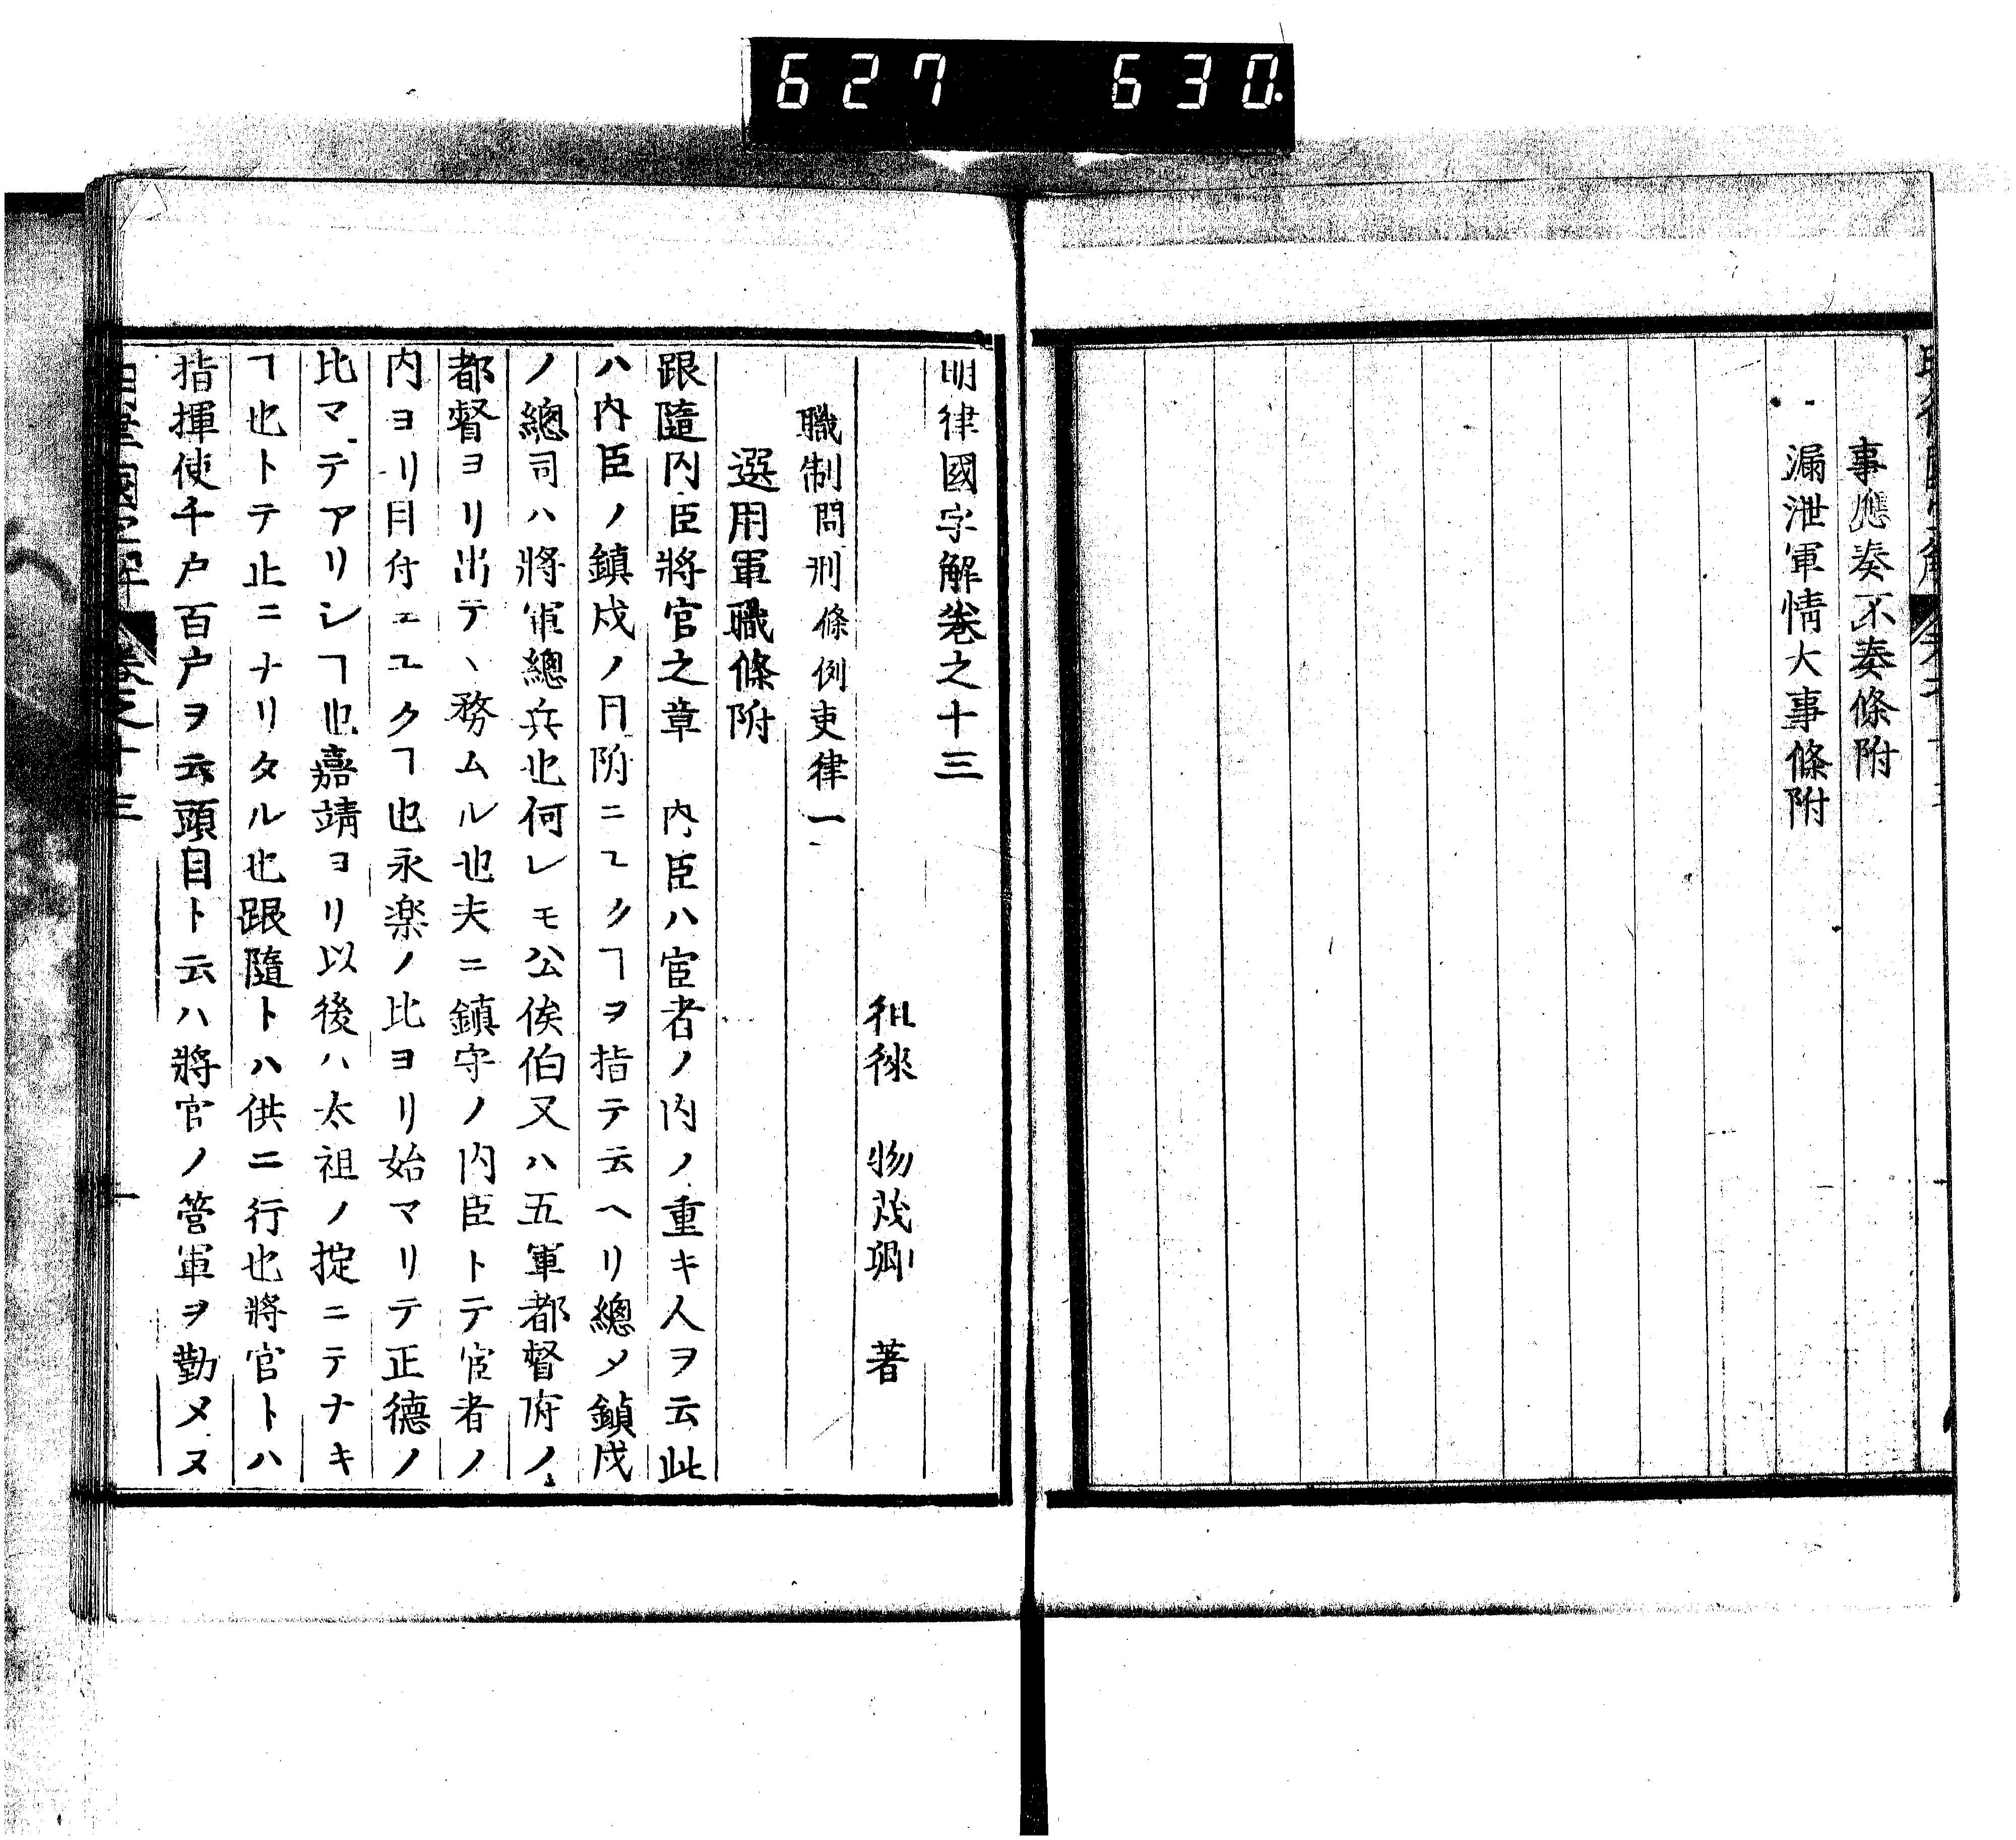 627 630.
事應奏不奏條附
漏泄軍情大事條附
明律國字解卷之十三
徂徠 物茂卿 著
職制問刑條例吏律一
選用軍職條附
跟隨内臣將官之章 内臣ハ宦者ノ内ノ重キ人ヲ云此
ハ内臣ノ鎮戍ノ目附ニユクヿヲ指テ云ヘリ總メ鎮戍
ノ總司ハ將軍總兵也何レモ公侯伯又ハ五軍都督府ノ
都督ヨリ出テヽ務ムル也夫ニ鎮守ノ内臣トテ宦者ノ
内ヨリ目付ニユクヿ也永楽ノ比ヨリ始マリテ正德ノ
比マテアリシヿ也嘉靖ヨリ以後ハ太祖ノ掟ニテナキ
ヿ也トテ止ニナリタル也跟隨トハ供ニ行也將官トハ
指揮使千戸百戸ヲ云頭目ト云ハ將官ノ管軍ヲ勤メヌ
卷之十三